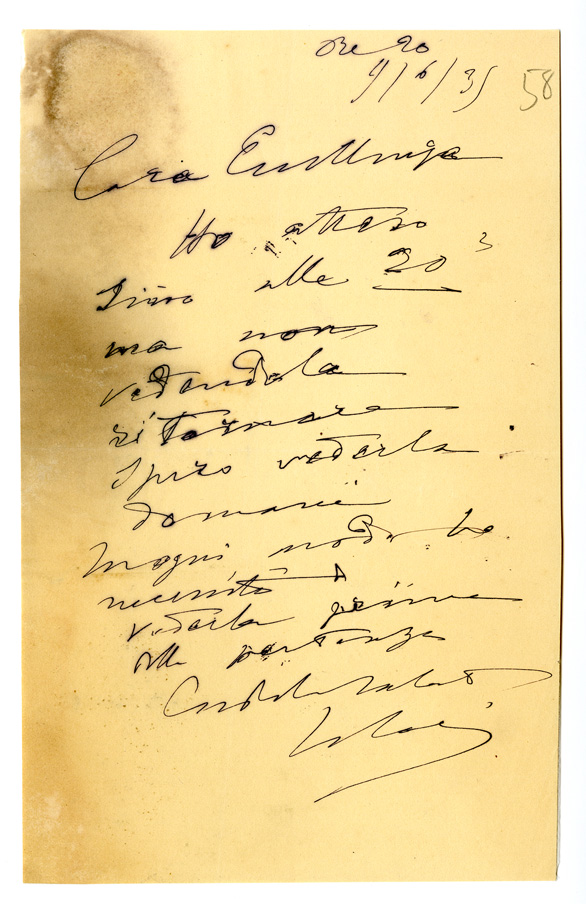 Ore 20
9/6/35
58
Cara
Ho atteso
sino alle 20
ma non
vedendola
ritornare
spero vederla
domani
In ogni modo ho
necessità
vederla prima
della partenza
Cordiali saluti